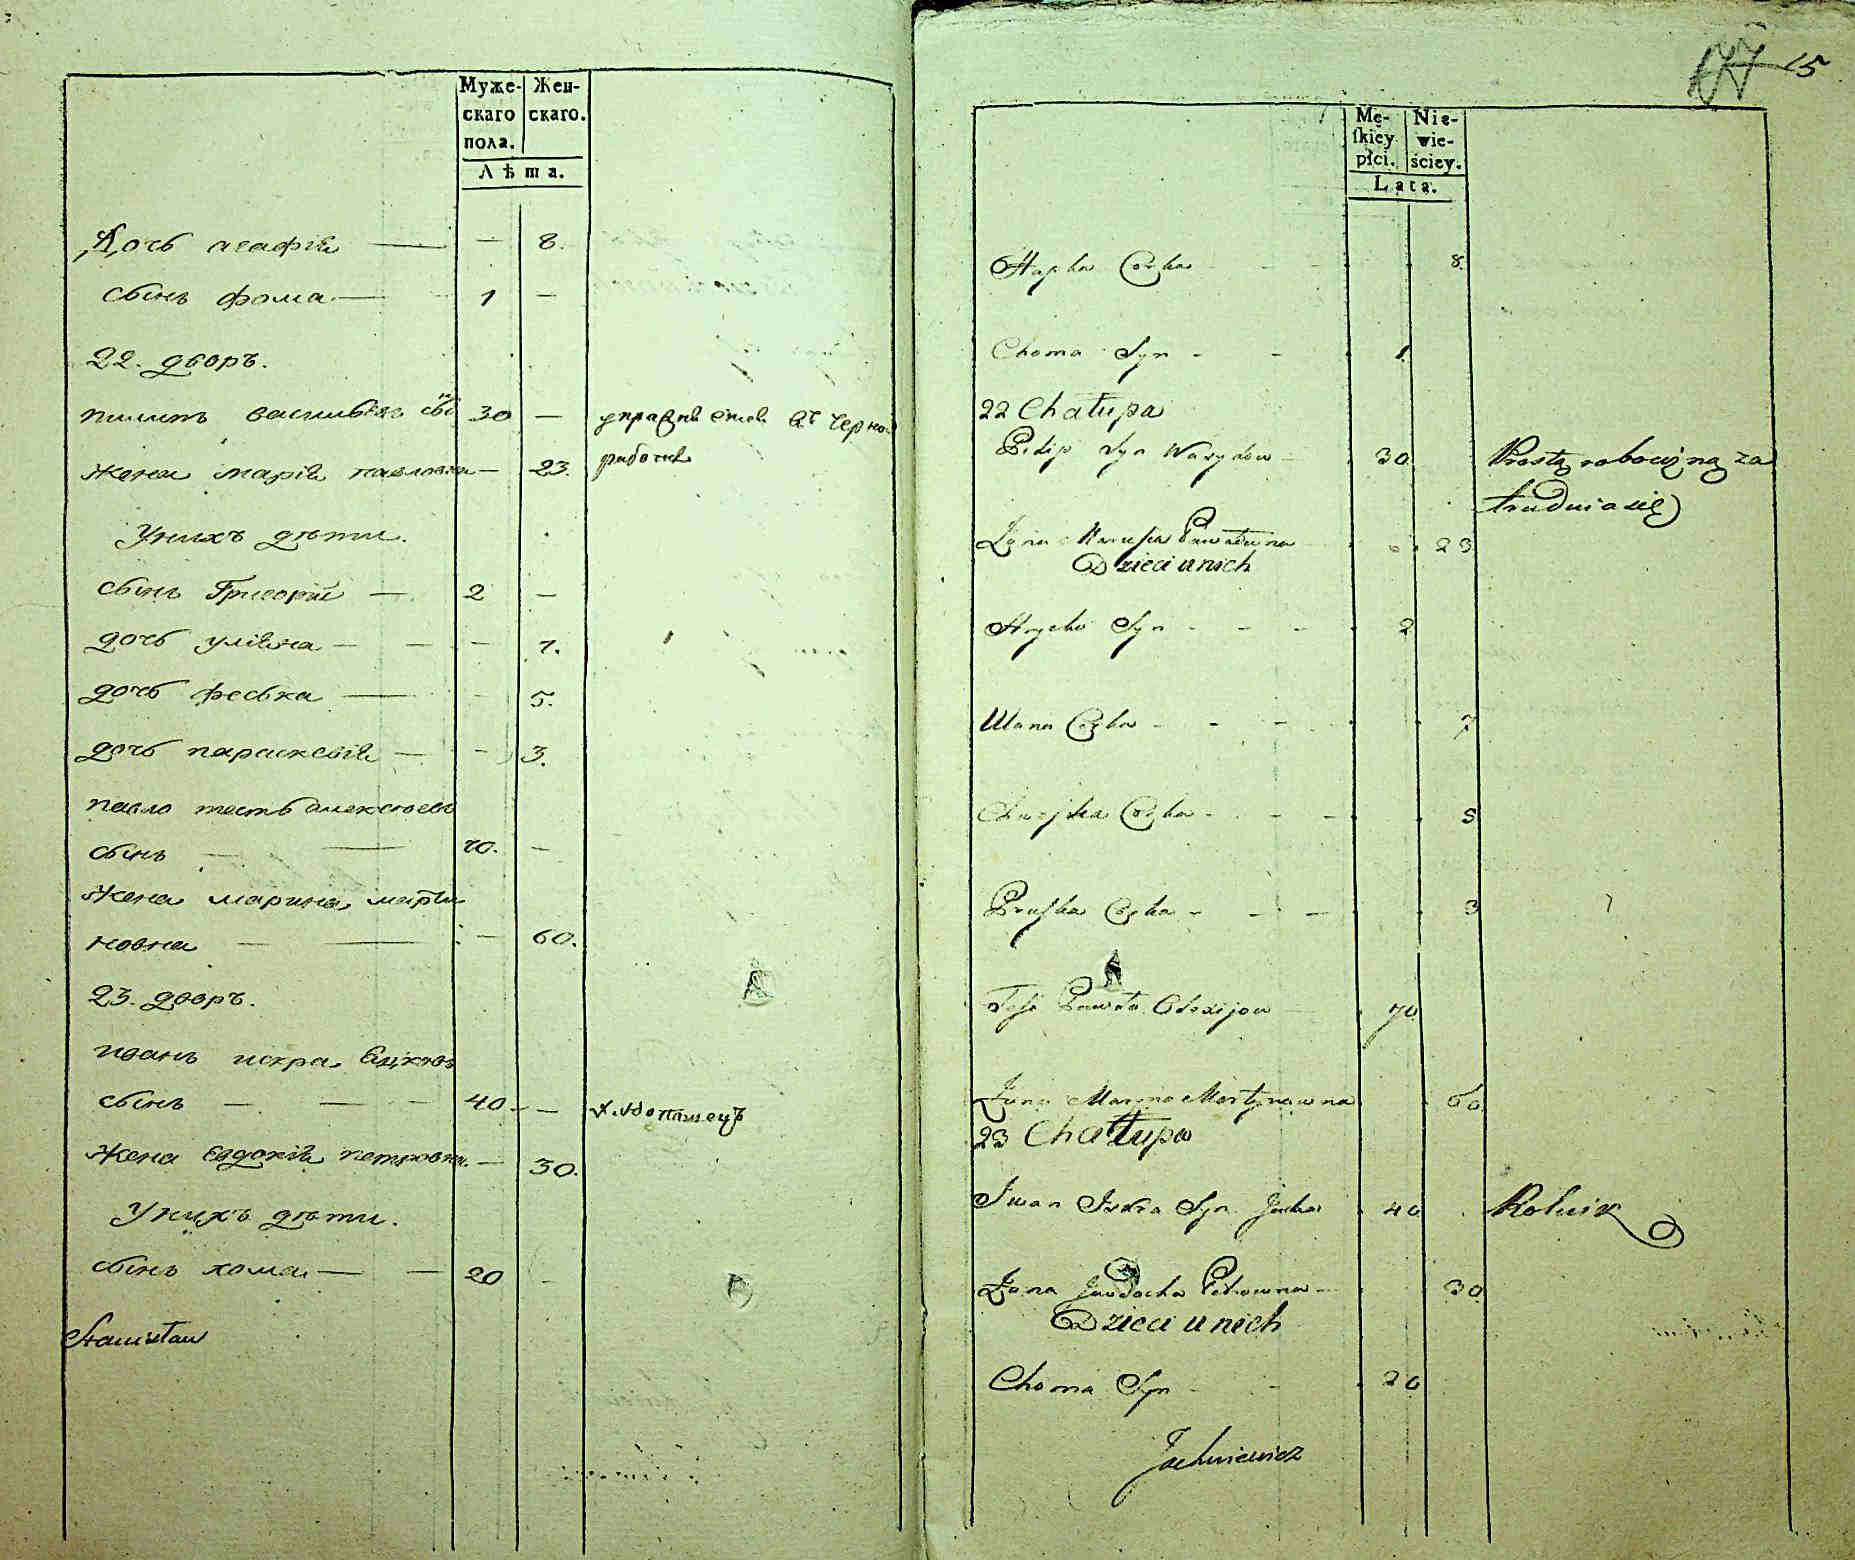 Муже- Жен-
скаго скаго.
пола.
Лѣта.
Дочь агафія — — 8.
сынъ фома — 1 —
22. дворъ.
пилипъ васильевъ сын 30 — упражняется въ черной
жена марія павловна — 23. работе
У нихъ дѣти.
сынъ Григорій — 2 —
дочь уліяна — — 7.
дочь феська — — 5.
дочь параскевія — — 3.
павло тесть алексѣевъ
сынъ — — 70. —
жена марина марты
новна — — — 60.
23. дворъ.
иванъ искра яцковъ
сынъ — — — 40 — — хлебопашецъ
жена евдокія петровна — 30.
У нихъ дѣти.
сынъ хома — — 20 —
Stanisław
177 15
Mę- Nie-
ſkiey wie-
płci. ściey.
Lata.
Hapka Corka - - 8.
Choma Syn - - 1.
22 Chałupa
Pilip Syn Wasylow - 30 Prostą robocizną za
trudnia się
Żona Marusia Pawałowna 23
Dzieci u nich
Hryćko Syn - - - 2
Ulana Corka - - - 7
Corka - - - 5
Paraska Corka - - - 3
Teść Pawło Olexijow 70
Żona Maryna Martynowna 60
23 Chałupa
Iwan Iskra Syn Jacka 40 Rolnik
Żona Jawdocha Petrowna 30
Dzieci u nich
Choma Syn - - 20
Jachniewicz